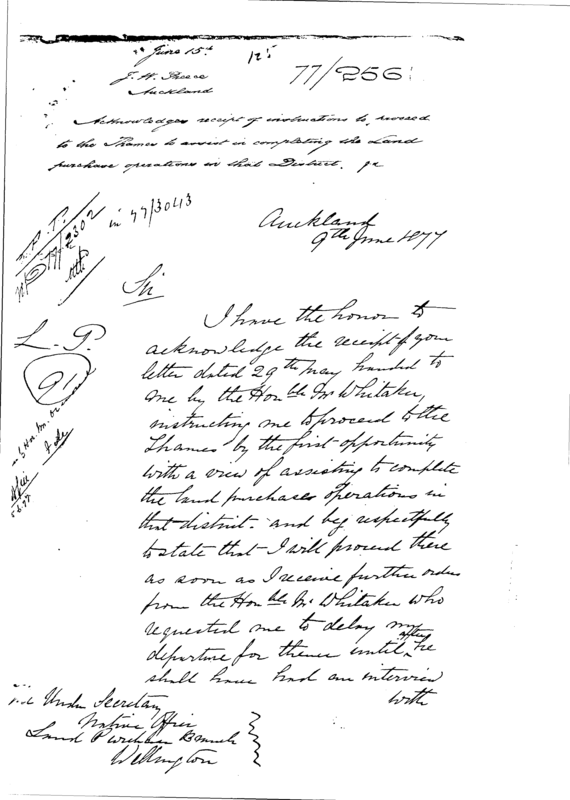 June 15th
77/256
J. W. Preece
Auckland
Acknowledges receipt of instructions to proceed
to the Thames to assist in completing the Land
purchase operations in that District.
in 77/3043
77/2302
Auckland
9th June 1877
Sir
L. P.
91
I have the honor to
acknowledge the receipt of your
letter dated 29th May handed to
me by the Honble Mr Whitaker,
instructing me to proceed to the
Thames by the first opportunity
with a view of assisting to complete
the land purchases operations in
that district. and beg respectfully
to state that I will proceed there
as soon as I receive further orders
from the Honble Mr Whitaker who
requested me to delay my
departure for thence until after he
shall have had an interview
with
Under Secretary
Native Office
Land Purchase Branch
Wellington